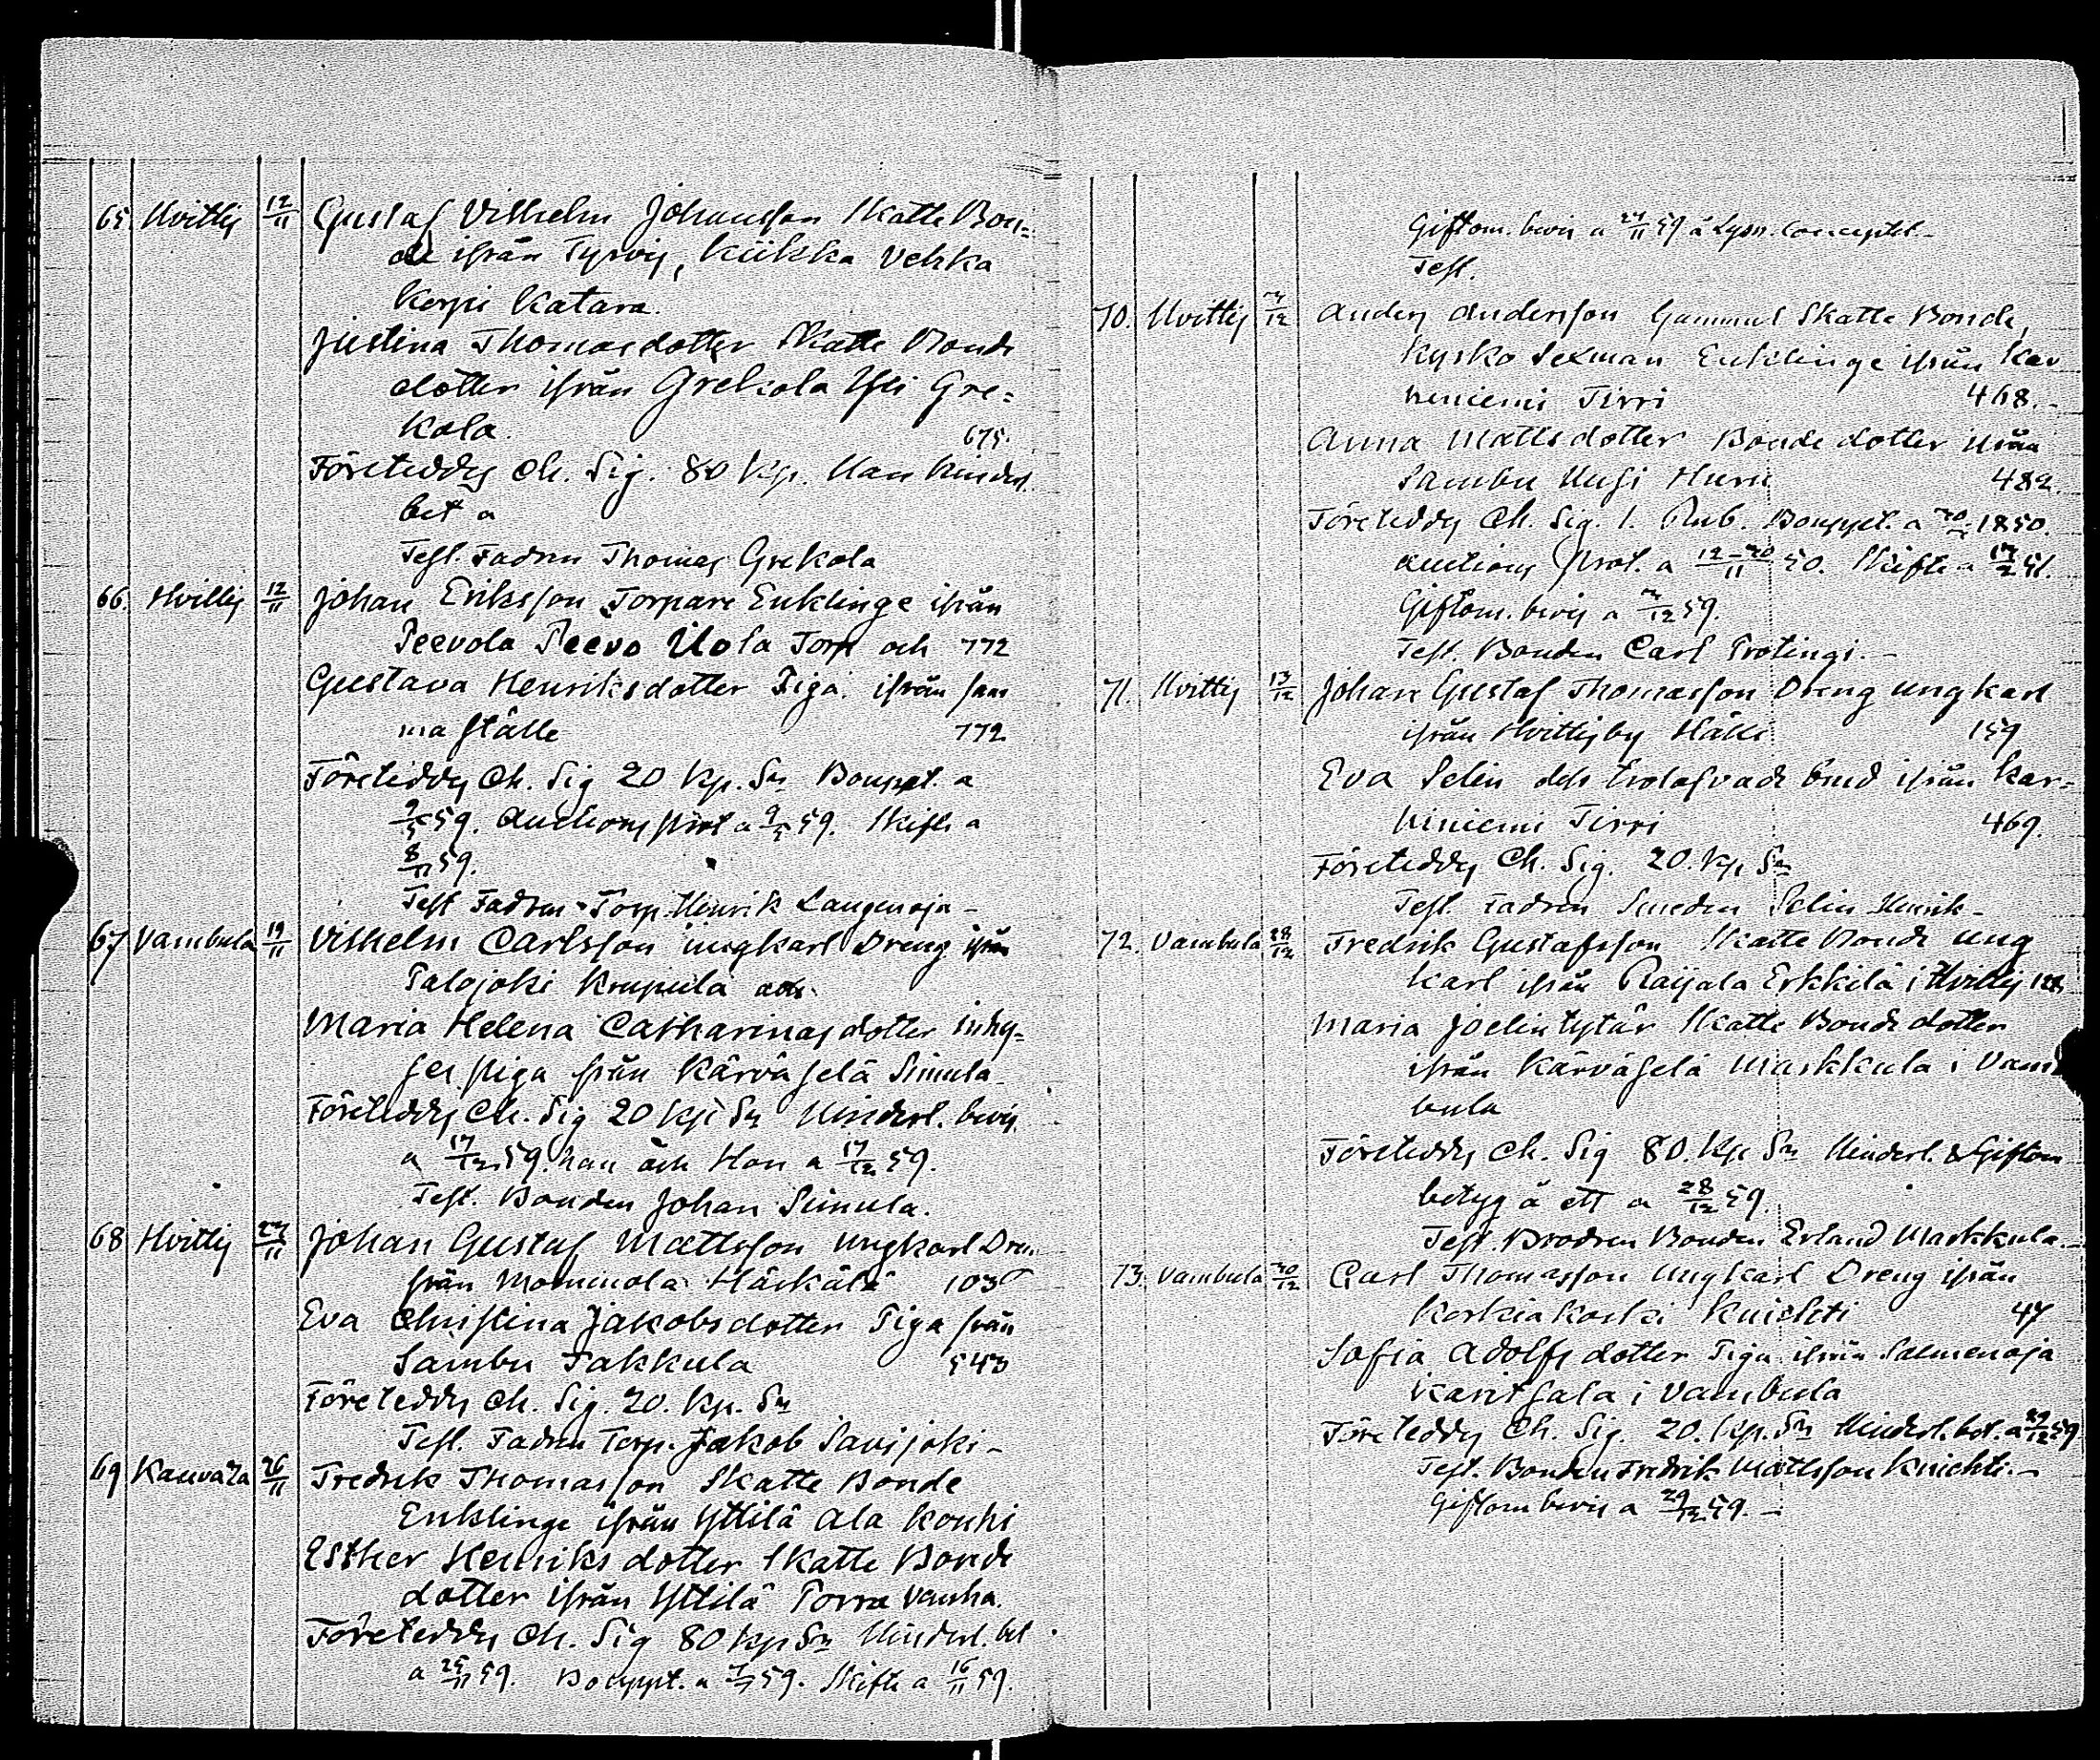 65. Hvittis 12/11 Gustaf Vilhelm Johansson Skatte Bon=
de ifrån Tyrvis, Kiikka Vehka
Korpi Katara.
Justina Thomasdotter Skatte Bonde
dotter ifrån Grekola Yli Gre=
kola. 675.
Företeddes Ch. Sig. 80 Kp. Han hinders
bet a
Test. Fadren Thomas Grekola
66. Hvittis 12/11 Johan Eriksson Torpare Enklinge ifrån
Peevola Peevo Uola Torp och 772
Gustava Henriksdotter Piga ifrån sam
ma ställe 772
Företeddes Ch. Sig 20 Kp. Sr Bouppt. a
9/5 59. Auctions prot a 9/5 59. Skifte a
8/11 59.
Test Fadren Torp. Henrik Laugenoja -
67 Vambula 19/11 Vilhelm Carlsson ungkarl Dreng ifrån
Palojoki Krupula och
Maria Helena Catharinas dotter inhy=
ses piga från Kärväselä Simula
Företeddes Ch. Sig 20 Kp Sr Hinderl. bevis
a 17/12 59. han och Hon a 17/12 59.
Test. Bonden Johan Simula.
68 Hvittis 24/11 Johan Gustaf Mattsson ungkarl Dren
från Mommola Härkälä 103
Eva Christina Jakobsdotter Piga från
Sambu Takkula 543
Företeddes Ch. Sig. 20. Kp. Sr
Test. Fadren Torp. Jakob Savijoki -
69 Kauvatza 26/11 Fredrik Thomasson Skatte Bonde
Enklinge ifrån Yttilä Ala Kouhi
Esther Henriks dotter Skatte Bonde
dotter ifrån Yttilä Porra Vanha.
Företeddes Ch. Sig 80 Kp Sr Hinderl. bet
a 25/11 59. Bouppt. a 59. Skifte a 16/11 59.
Giftom. bevis a 24/11 59 å Lysn. conceptet -
Test.
70. Hvittis /12 Anders Andersson Gammul Skatte Bonde,
Kyrko Sexman Enklinge ifrån Kar
hiniemi Tirri 468. -
Anna Mattsdotter Bonde dotter ifrån
Sambu Uusi Huru 482.
Företeddes Ch. Sig. 1. Rub. Bouppt. a 1850.
auctions prot. a 50. Skifte a 51.
Giftom. bevis a /12 59.
Test. Bonden Carl Protingi. -
71. Hvittis 13/12 Johan Gustaf Thomasson Dreng ungkarl
ifrån Hvittisby Hälli 159
Eva Selin dess trolofvade brud ifrån Kar=
hiniemi Tirri 469.
Företeddes Ch. Sig. 20. Kp Sr
Test. Fadren Smeden Selin Henrik -
72. Vambula 28/12 Fredrik Gustafsson Skatte Bonde ung
karl ifrån Raijala Erkkilä i Hvittis
Maria Joelintytär Skatte Bonde dotter
ifrån Kärväselä Markkula i Vam
bula
Företeddes Ch. Sig 80. Kp Sr Hinderl. & Giftom
betyg å ett a 28/12 59.
Test. Brodren Bonden Erland Markkula. -
73. Vambula 30/12 Carl Thomasson Ungkarl Dreng ifrån
Korkiakoski Knichti 47
Sofia Adolfs dotter Piga ifrån Salmenoja
Karitsala i Vambula
Företeddes Ch. Sig. 20. Kp. Sr Hinderl. bet. a 29/12 59
Test. Bonden Fredrik Mattsson Knichti. -
Giftom bevis a 29/12 59. -